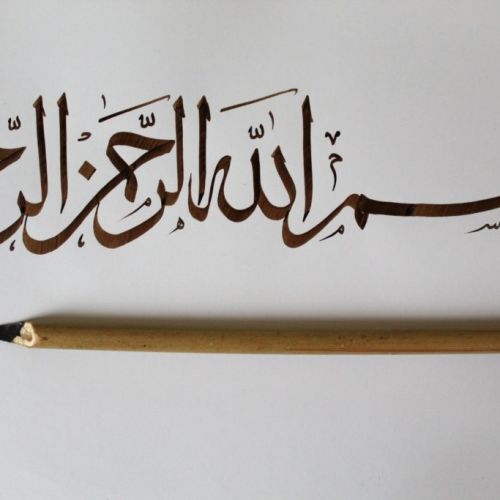 سم اللّٰه الرّحمٰن الرّح